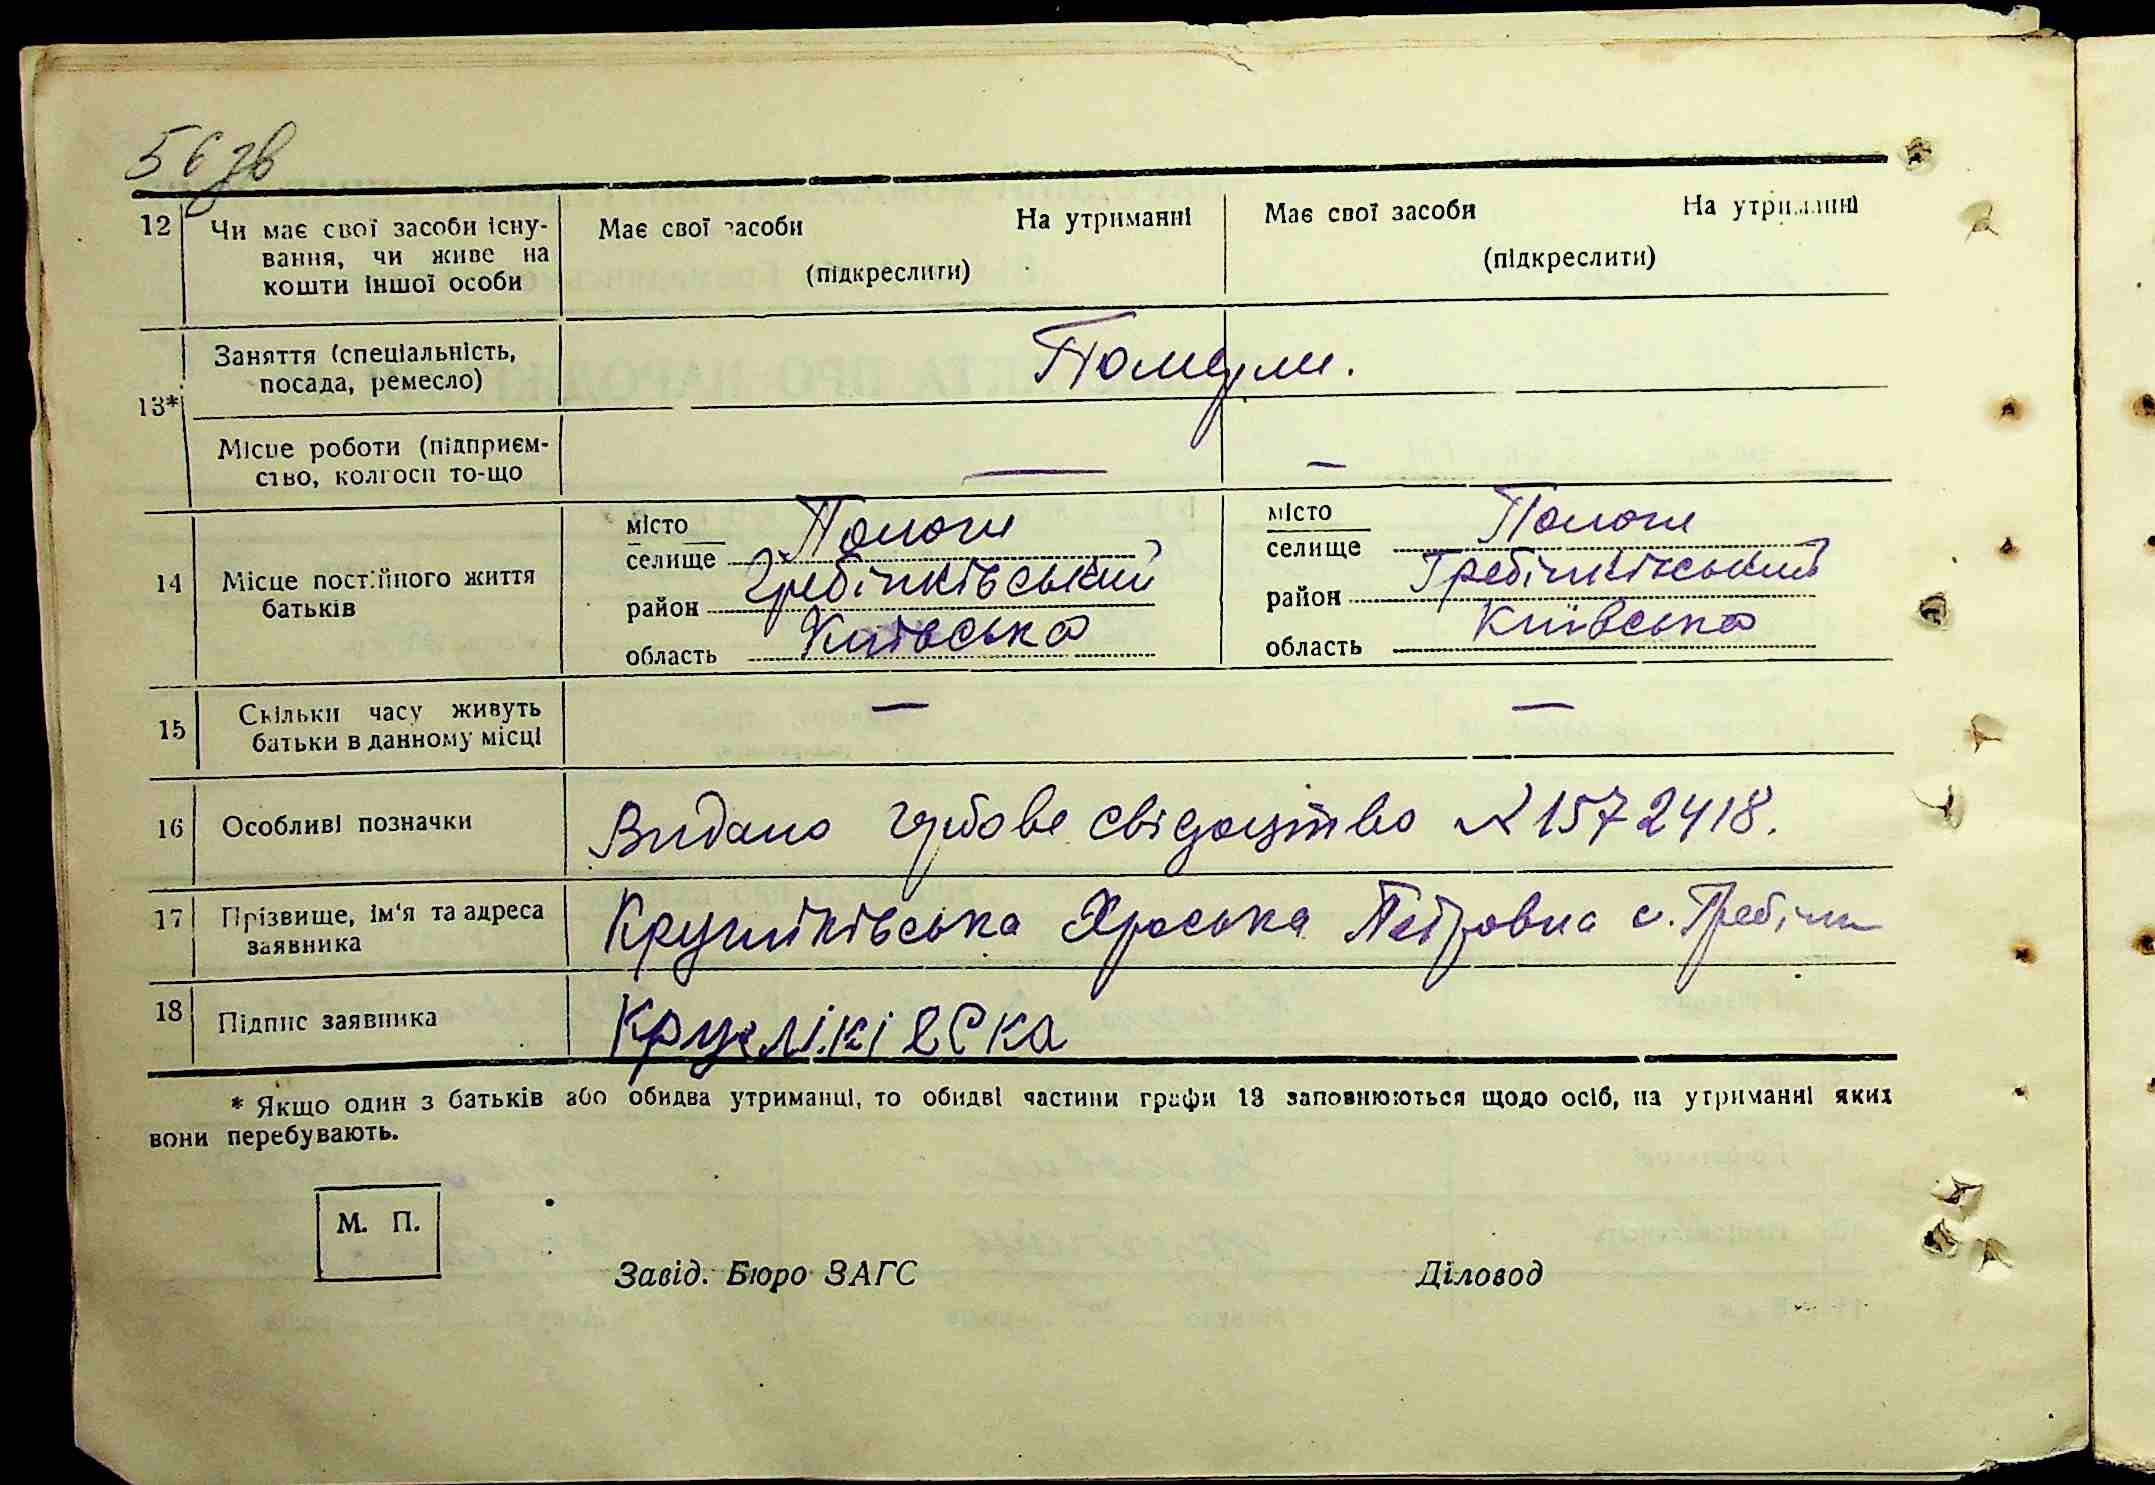 56 зв
12 Чи має свої засоби існу- Має свої засоби На утриманні Має свої засоби На утриманні
вання, чи живе на (підкреслити) (підкреслити)
кошти іншої особи
13* Заняття (спеціальність, Померли.
посада, ремесло)
Місце роботи (підприєм- — —
ство, колгосп то-що
14 Місце постійного життя
батьків
місто Пологи
селище
район Гребінківський
область Київська
місто Пологи
селище
район Гребінківський
область Київська
15 Скільки часу живуть — —
батьки в данному місці
16 Особливі позначки Видано гербове свідоцтво № 1572418.
17 Прізвище, ім'я та адреса Петровна с. Гребінки
заявника
18 Підпис заявника
* Якщо один з батьків або обидва утриманці, то обидві частини графи 13 заповнюються щодо осіб, на утриманні яких
вони перебувають.
М. П.
Завід. Бюро ЗАГС Діловод